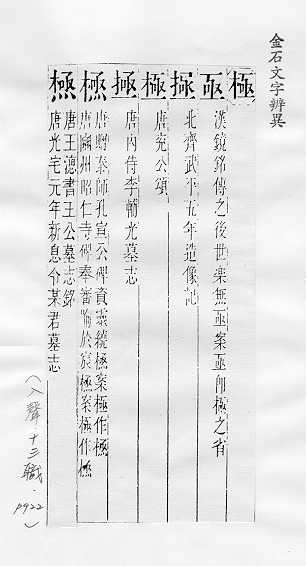 金石文字辨異
極
亟 漢鏡銘傳之後世樂無亟案亟即極之省
北齊武平五年造像記
極 唐兗公頌
唐內侍李輔光墓志
唐贈泰師孔宣公碑資靈統極案極作極
唐豳州昭仁寺碑奉審諭於宸極案極作
唐王德書王公墓志銘
唐光宅元年新息令某君墓志
(入聲.十三職.P922)